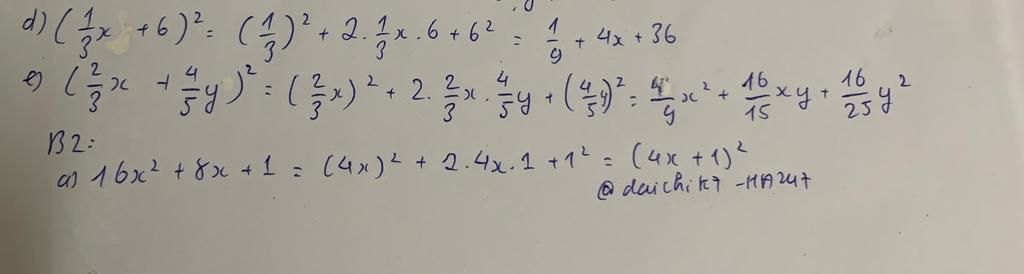 d) (1/3 x + 6)² = (1/3)² + 2. 1/3 x . 6 + 6² = 1/9 + 4x + 36
e) (2/3 x + 4/5 y)² = (2/3 x)² + 2. 2/3 x . 4/5 y + (4/5 y)² = 4/9 x² + 16/15 xy + 16/25 y²
B2:
a) 16x² + 8x + 1 = (4x)² + 2.4x.1 + 1² = (4x + 1)²